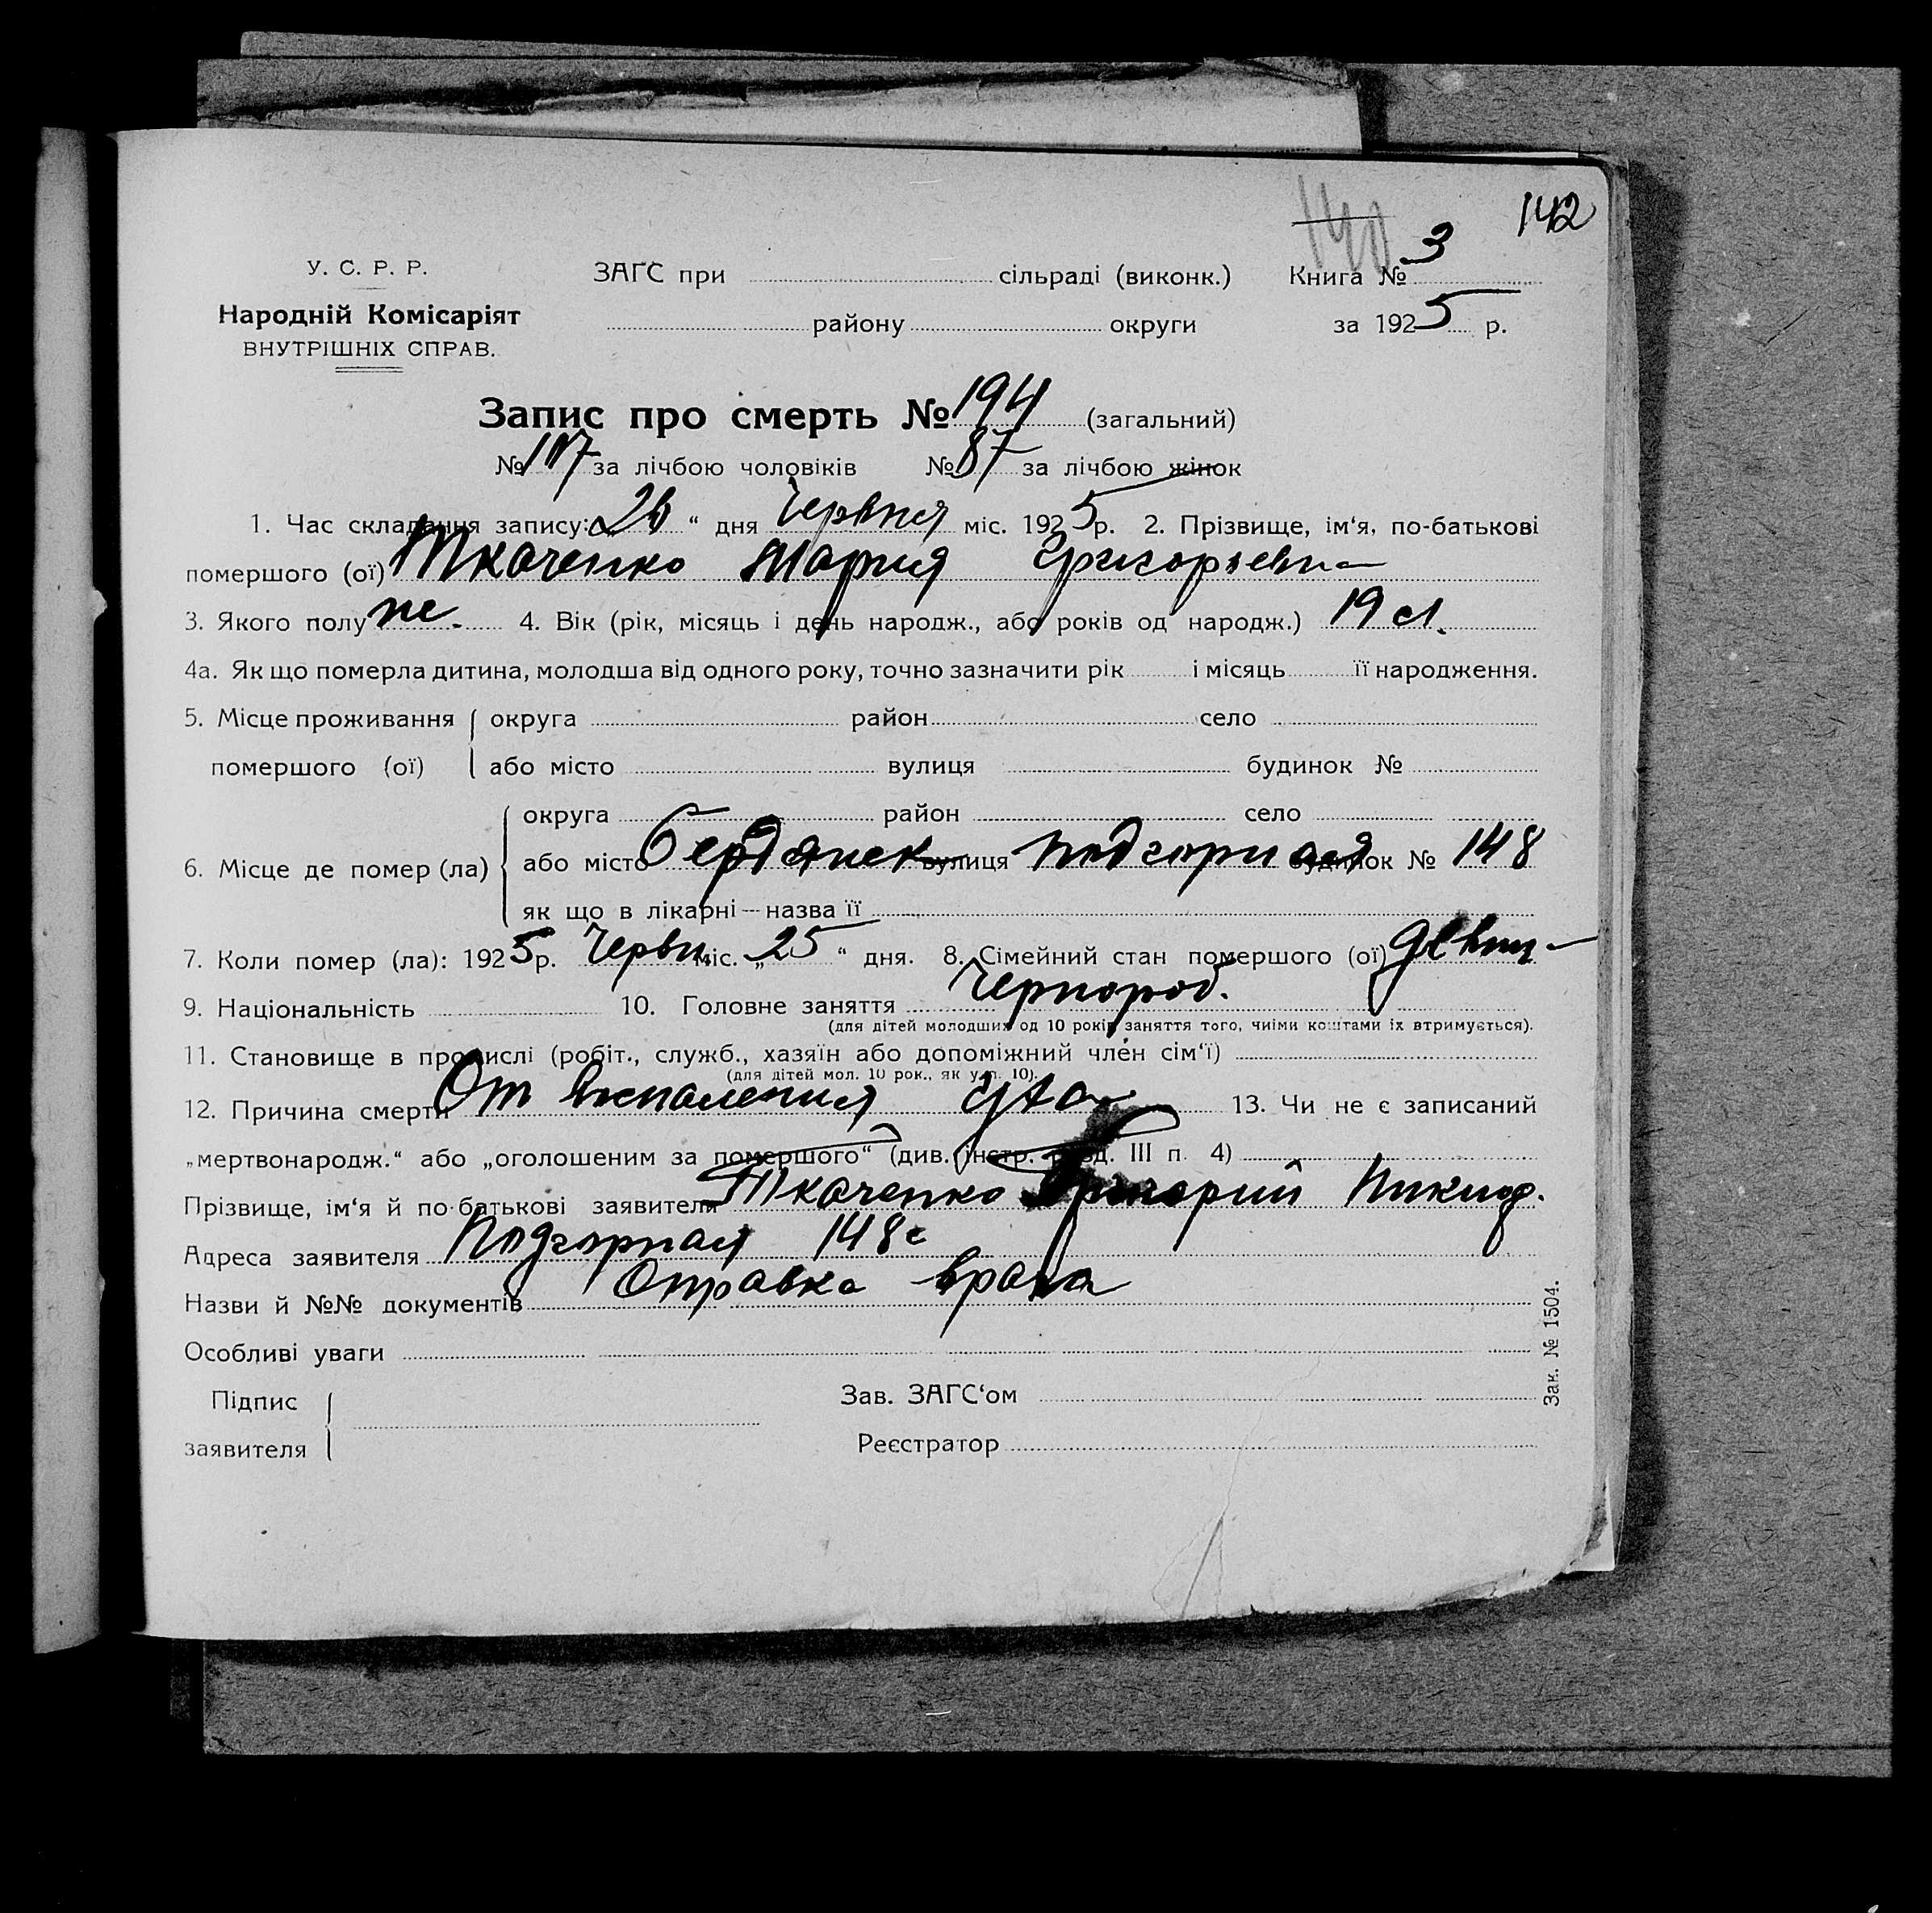 142
140
У. С. Р. Р. ЗАГС при сільраді (виконк.) Книга № 3
Народній Комісаріят району округи за 1925 р.
ВНУТРІШНІХ СПРАВ.
Запис про смерть № 194 (загальний)
№ 107 за лічбою чоловіків № 87 за лічбою жінок
1. Час складання запису: „26“ дня Червня міс. 1925 р. 2. Прізвище, ім‘я, по-батькові
помершого (ої) Ткаченко Мария Григорьевна
3. Якого полу 4. Вік (рік, місяць і день народж., або років од народж.) 19 л.
4а. Як що померла дитина, молодша від одного року, точно зазначити рік і місяць її народження.
5. Місце проживання округа район село
помершого (ої) або місто вулиця будинок №
округа район село
6. Місце де помер (ла) або місто Бердянск вулиця Подгорная будинок № 148
як що в лікарні — назва її
7. Коли помер (ла): 1925 р. Червн. міс. „25“ дня. 8. Сімейний стан помершого (ої) девиц
9. Національність 10. Головне заняття Чернороб.
(для дітей молодших од 10 років заняття того, чиїми коштами їх втримується).
11. Становище в промислі (робіт., служб., хазяїн або допоміжний член сім‘ї)
(для дітей мол. 10 рок., як у п. 10).
12. Причина смерти От воспаления уха 13. Чи не є записаний
„мертвонародж.“ або „оголошеним за помершого“ (див. інстр. розд. III п. 4)
Прізвище, ім‘я й по-батькові заявителя Ткаченко Григорий Никиф.
Адреса заявителя Подгорная 148
Назви й №№ документів Справка врача
Особливі уваги
Підпис Зав. ЗАГС‘ом
заявителя Реєстратор
Зак. № 1504.